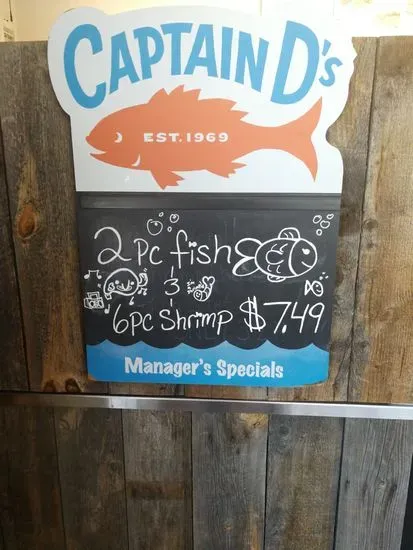 CAPTAIN D's
EST. 1969
2 pc fish
3
6pc Shrimp $7.49
Manager's Specials